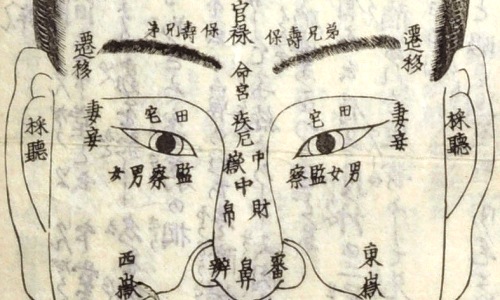 官禄
保壽兄弟
保壽兄弟
遷移
遷移
命宮
疾厄
田宅
田宅
妻妾
妻妾
採聽
採聽
男女監察
監察男女
中嶽
財帛
審鼻辨
東嶽
西嶽